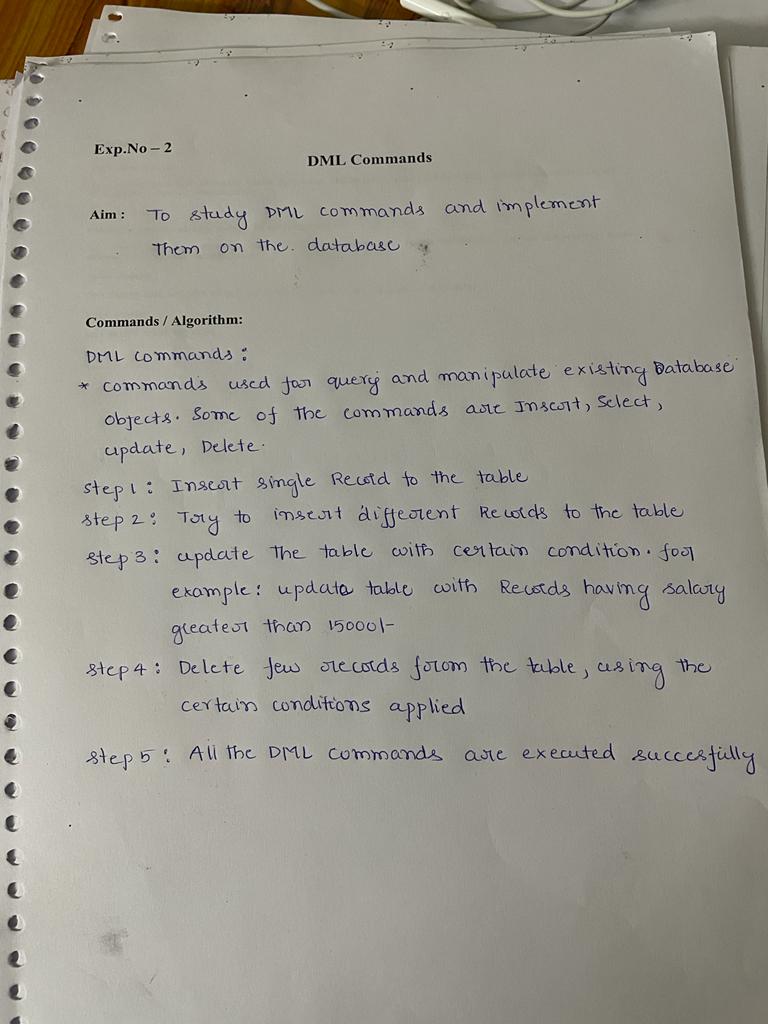 Exp.No – 2
DML Commands
Aim : To study DML commands and implement
Them on the database
Commands / Algorithm:
DML commands :
* commands used for query and manipulate existing Database
objects. Some of the commands are Insert, Select,
update, Delete.
step 1 : Insert single Record to the table
step 2 : Try to insert different Records to the table
step 3 : update the table with certain condition. for
example : update table with Records having salary
greater than 15000/-
step 4 : Delete few records from the table, using the
certain conditions applied
step 5 : All the DML commands are executed succesfully